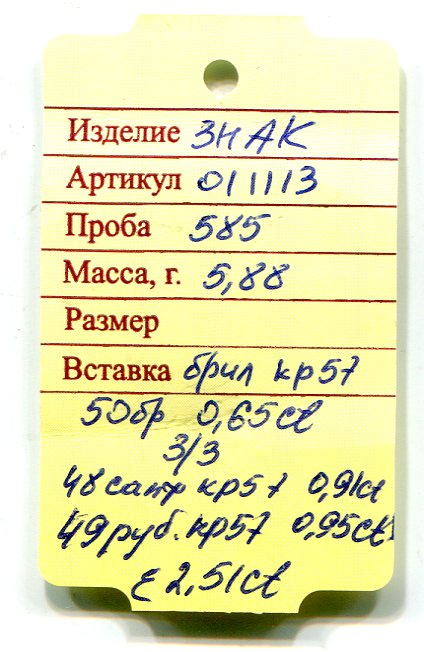 Изделие ЗНАК
Артикул 011113
Проба 585
Масса, г. 5,88
Размер
Вставка брил кр57
50бр 0,65ct
3/3
48сапф кр57 0,91ct
49руб. кр57 0,95ct
Σ 2,51ct